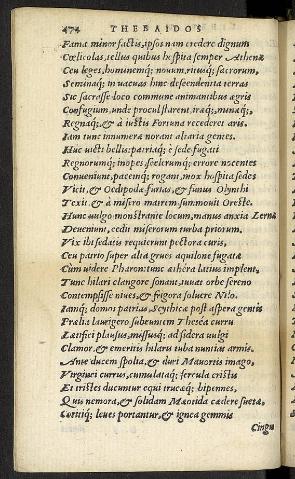 474 THEBAIDOS
Fama minor factis, ipsos nam credere dignum
Cœlicolas, tellus quibus hospita semper Athenæ
Ceu leges, hominemq; nouum, ritusq; sacrorum,
Seminaq; in uacuas hinc descendentia terras
Sic sacrasse loco commune animantibus ægris
Confugium, unde procul starent iræq; minæq;
Regnaq;, & à iustis Fortuna recederet aris.
Iam tunc innumeræ norant altaria gentes.
Huc uicti bellis: patriaq; è sede fugati
Regnorumq; inopes, scelerumq; errore nocentes
Conueniunt, pacemq; rogant, mox hospita sedes
Vicit, & Oedipodæ furias, & funus Olynthi
Texit. & à misero matrem summouit Oreste.
Huc uulgo monstrante locum, manus anxia Lernæ
Deueniunt, cedit miserorum turba priorum.
Vix ibi sedatis requierunt pectora curis,
Ceu patrio super alta grues aquilone fugatæ
Cùm uidere Pharon: tunc æthera latius implent,
Tunc hilari clangore sonant, iuuat orbe sereno
Contempsisse niues, & frigora soluere Nilo.
Iamq; domos patrias, Scythicæ post aspera gentis
Prælia laurigero subeuntem Thesea curru
Lætifici plausus, missusq; ad sidera uulgi
Clamor, & emeritis hilaris tuba nuntiat armis.
Ante ducem spolia, & duri Mauortis imago,
Virginei currus, cumulataq; fercula cristis
Et tristes ducuntur equi truncæq; bipennes,
Quis nemora, & solidam Mæotida cædere suetæ,
Corytiq; leues portantur, & ignea gemmis
Cingu